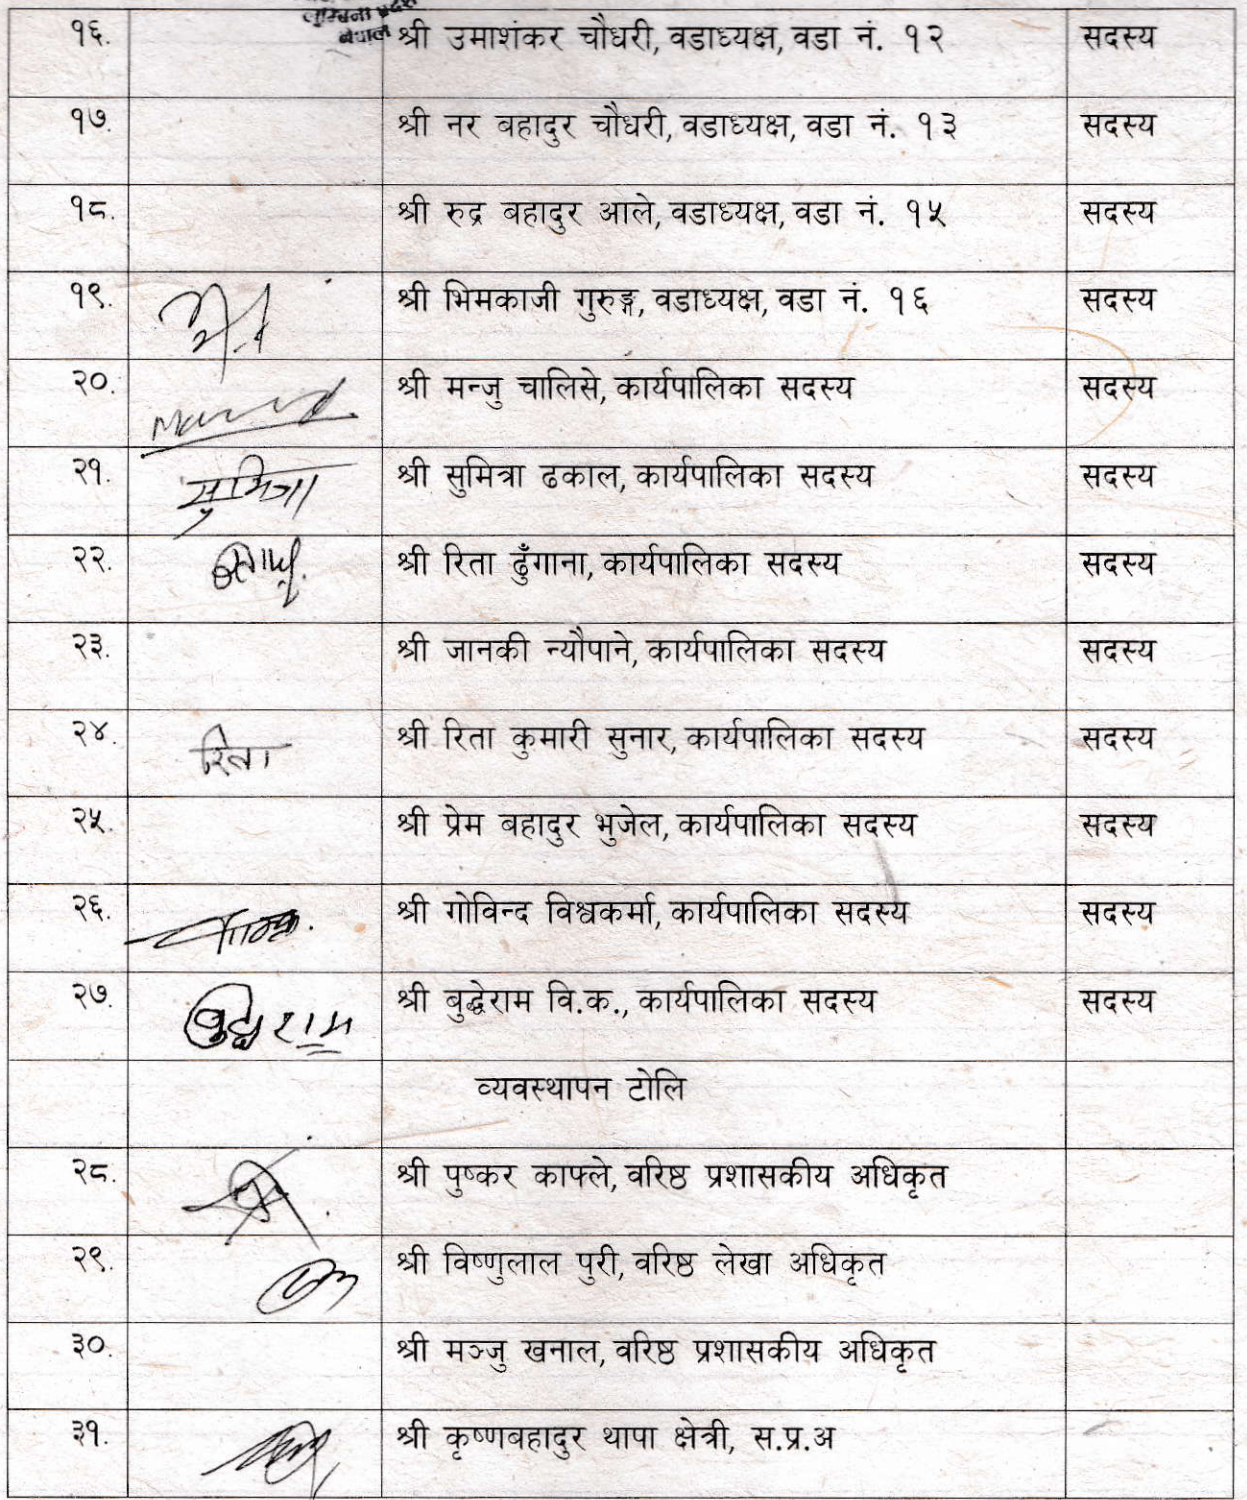 लुम्बिनी प्रदेश
नेपाल
१६. श्री उमाशंकर चौधरी, वडाध्यक्ष, वडा नं. १२ सदस्य
१७. श्री नर बहादुर चौधरी, वडाध्यक्ष, वडा नं. १३ सदस्य
१८. श्री रुद्र बहादुर आले, वडाध्यक्ष, वडा नं. १५ सदस्य
१९. श्री भिमकाजी गुरुङ्ग, वडाध्यक्ष, वडा नं. १६ सदस्य
२०. श्री मन्जु चालिसे, कार्यपालिका सदस्य सदस्य
२१. सुमित्रा श्री सुमित्रा ढकाल, कार्यपालिका सदस्य सदस्य
२२. श्री रिता ढुँगाना, कार्यपालिका सदस्य सदस्य
२३. श्री जानकी न्यौपाने, कार्यपालिका सदस्य सदस्य
२४. रिता श्री रिता कुमारी सुनार, कार्यपालिका सदस्य सदस्य
२५. श्री प्रेम बहादुर भुजेल, कार्यपालिका सदस्य सदस्य
२६. श्री गोविन्द विश्वकर्मा, कार्यपालिका सदस्य सदस्य
२७. बुद्धेराम श्री बुद्धेराम वि.क., कार्यपालिका सदस्य सदस्य
व्यवस्थापन टोलि
२८. श्री पुष्कर काफ्ले, वरिष्ठ प्रशासकीय अधिकृत
२९. श्री विष्णुलाल पुरी, वरिष्ठ लेखा अधिकृत
३०. श्री मञ्जु खनाल, वरिष्ठ प्रशासकीय अधिकृत
३१. श्री कृष्णबहादुर थापा क्षेत्री, स.प्र.अ